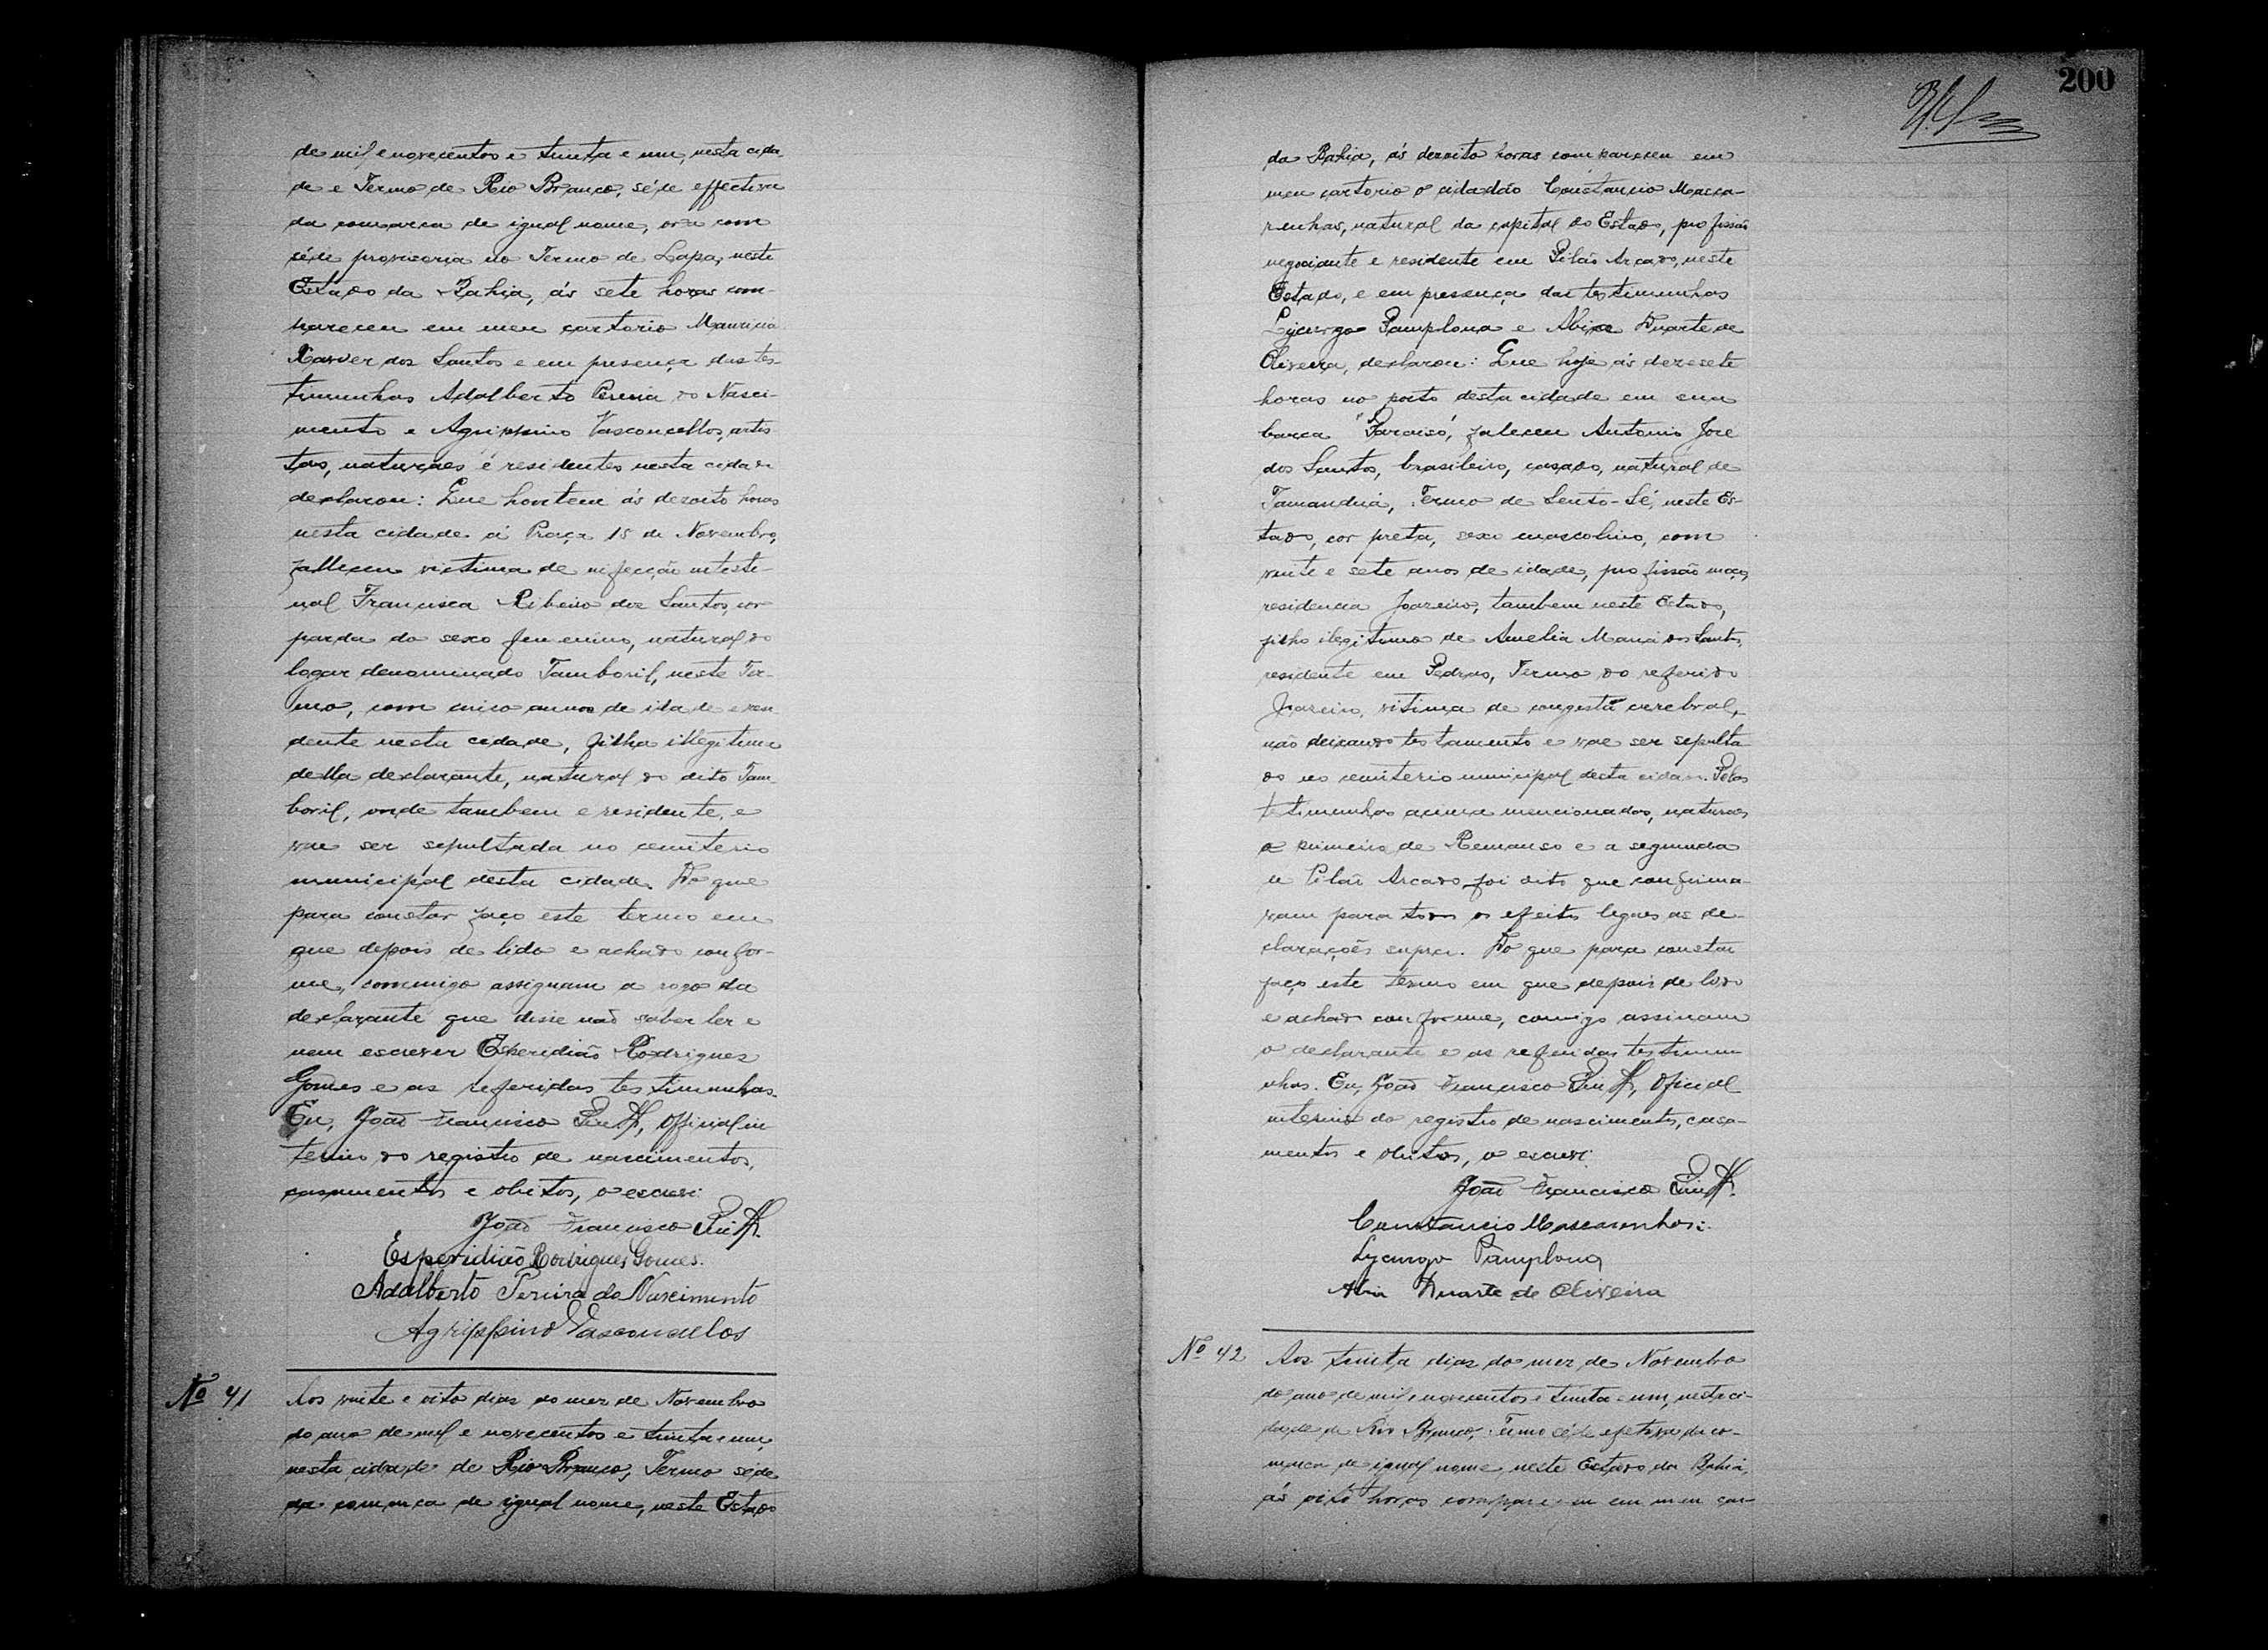 de mil e novecentos e trinta e um, nesta cida
de e Termo de Rio Branco, séde effectiva
da comarca de igual nome, ora com
séde provisoria no Termo de Lapa, neste
Estado da Bahia, ás sete horas com-
pareceu em meu cartorio Mauricia
Xavier dos Santos e em presença das tes-
timunhas Adalberto Pereira do Nasci-
mento e Agrippino Vasconcellos, artis-
tas, naturaes e residentes nesta cidade
declarou: Que hontem ás dezoito horas
nesta cidade á Praça 15 de Novembro,
falleceu victima de infecção intesti-
nal Francisca Ribeiro dos Santos, cor
parda do sexo femenino, natural do
logar denominado Tamboril, neste Ter-
mo, com cinco annos de idade e resi
dente nesta cidade, filha illegitima
della declarante, natural do dito Tam
boril, onde tambem e residente, e
vae ser sepultada no cemiterio
municipal desta cidade. Do que
para constar faço este termo em
que depois de lido e achado confor-
me, commigo assignam a rogo da
declarante que disse não saber ler e
nem escrever Esperidião Rodrigues
Gomes e as referidas testimunhas.
Eu, João Francisco Official in
terino do registro de nascimentos,
casamentos e obitos, o escrevi.
João Francisco
Esperidião Rodrigues Gomes.
Adalberto Pereira do Nascimento
Agrippino Vasconcellos
Nº 41
Aos vinte e oito dias do mez de Novembro
do ano de mil e novecentos e trinta e um,
nesta cidade de Rio Branco, Termo séde
da comarca de igual nome, neste Estado
200
da Bahia, ás dezoito horas compareceu em
meu cartorio o cidadão Constancio Masca-
renhas, natural da capital do Estado, profissão
negociante e residente em Pilão Arcado, neste
Estado, e em presença das testimunhas
Lycurgo Pamplona e Duarte de
Oliveira, declarou: Que hoje ás dezesete
horas no porto desta cidade em sua
barca "Paraiso", faleceu Antonio José
dos Santos, brasileiro, casado, natural de
Tamanduá, Termo de Sento-Sé, neste Es-
tado, cor preta, sexo mascolino, com
vinte e sete anos de idade, profissão moço,
residencia Joazeiro, tambem neste Estado,
filho ilegitimo de Amelia Maria dos Santos,
residente em Pedras, Termo do referido
Joazeiro, vitima de congestã cerebral,
não deixando testamento e vae ser sepulta
do no cemiterio municipal desta cidade. Pelas
testimunhas acima mencionadas, naturaes
a primeira de Remanso e a segunda
de Pilão Arcado foi dito que confirma-
vam para todos os efeitos legaes as de-
clarações supra. Do que para constar
faço este termo em que depois de lido
e achado conforme, comigo assinam
o declarante e as referidas testimu-
nhas. Eu, João Francisco Oficial
interino do registro de nascimentos, casa-
mentos e obitos, o escrevi.
João Francisco
Constancio Mascarenhas.
Lycurgo Pamplona
Duarte de Oliveira
Nº 42
Aos trinta dias do mez de Novembro
do ano de mil e novecentos e trinta e um, nesta ci-
dade de Rio Branco, Termo séde efetiva da co-
marca de igual nome, neste Estado da Bahia,
ás oito horas compareceu em meu car-